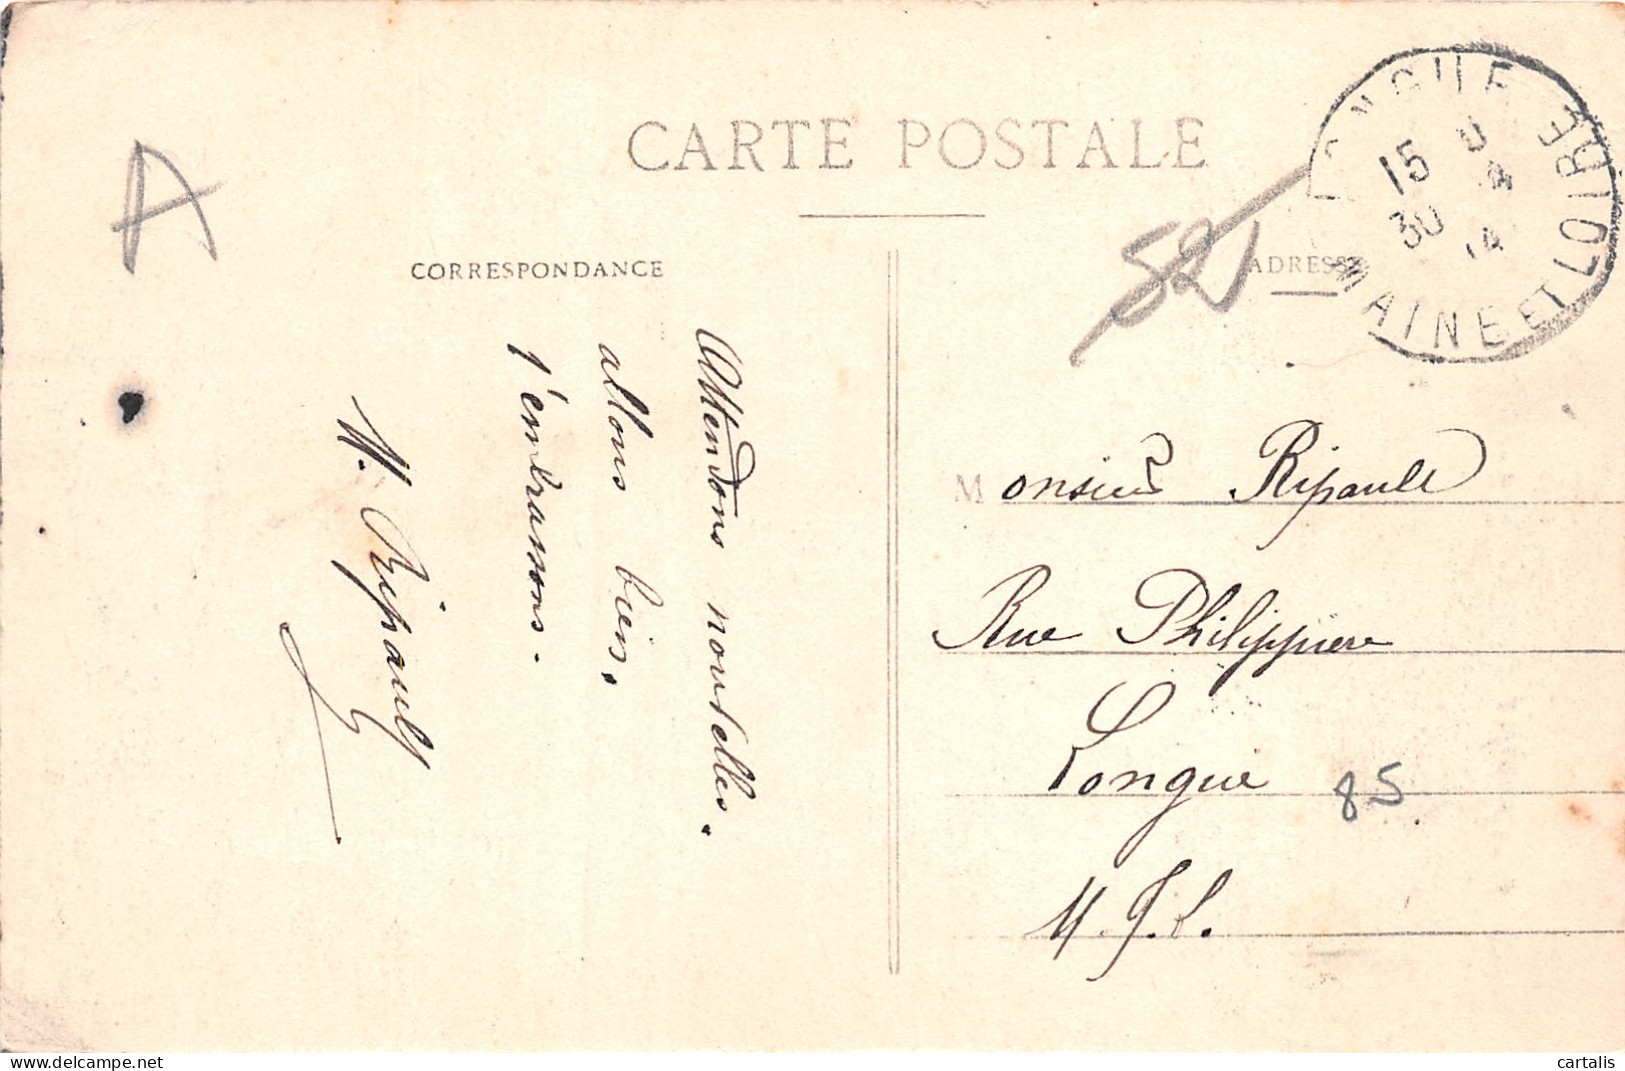 CARTE POSTALE
A
CORRESPONDANCE
ADRESSE
52
LONGUE
15
30
14
MAINE ET LOIRE
Attendons nouvelles.
allons bien,
t'embrassons.
M. Ripault
Monsieur Ripault
Rue Philippiere
Longue
85
M. & L.
cartalis